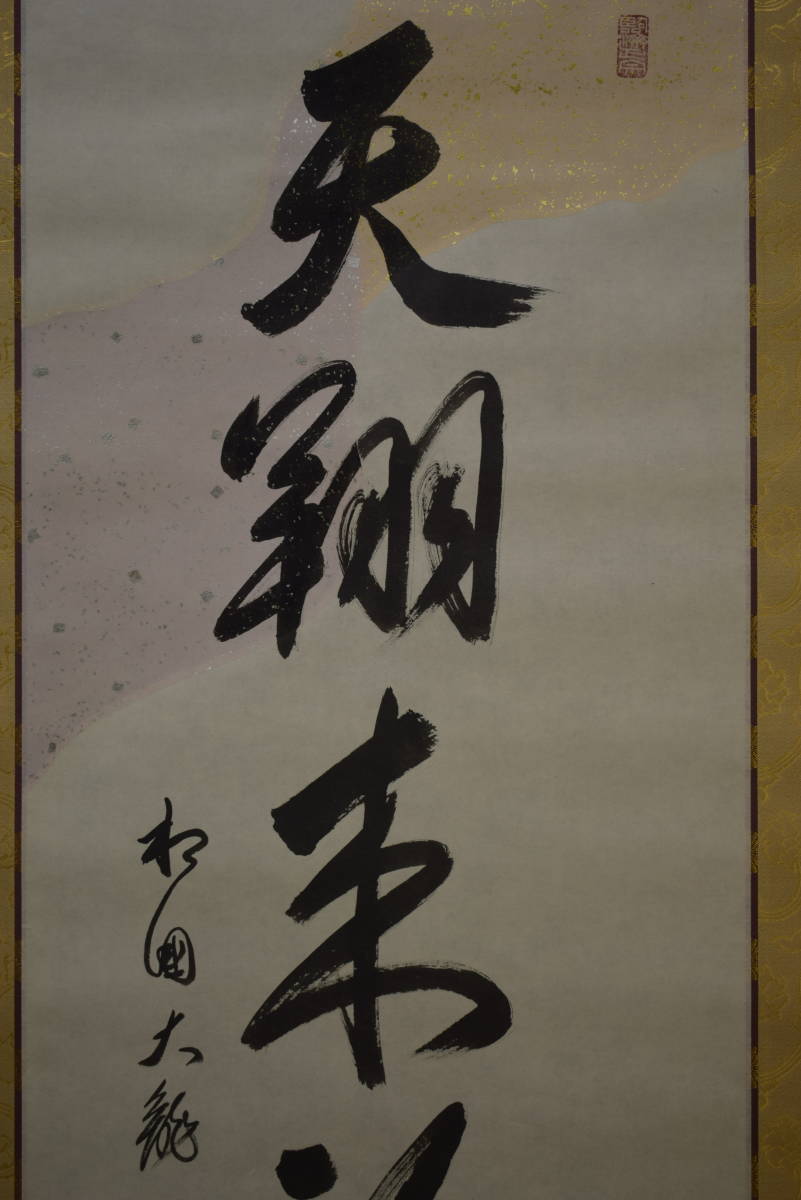 天翔来
相國大龍